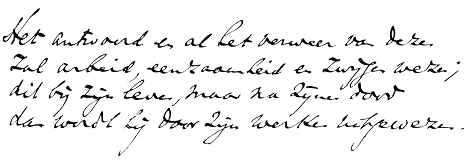 Het antwoord en al het verweer van deze
Zal arbeid, eenzaamheid en zwijgen wezen;
dit bij zijn leven, maar na zijnen dood
dan wordt hij door zijn werken uitgewezen.